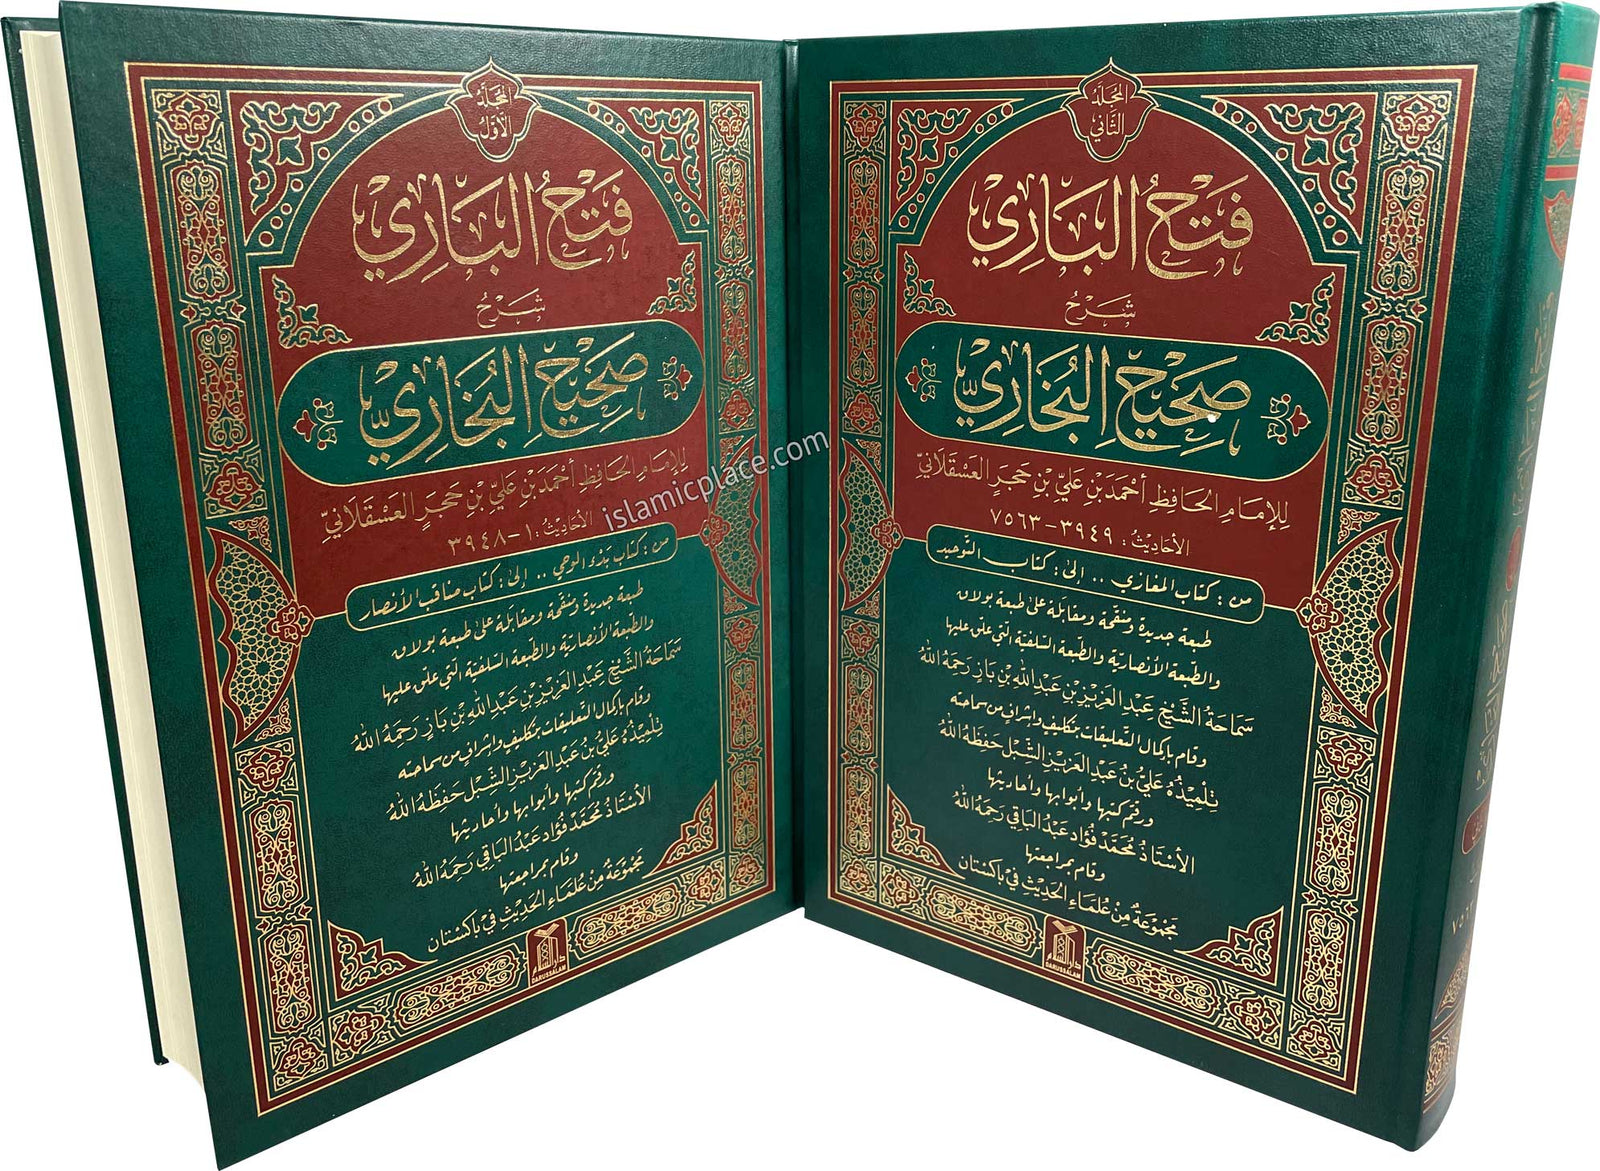 المجلد
الأول
فَتْحُ البَارِي
شَرْحُ
صَحِيْحِ البُخَارِيِّ
لِلإِمَامِ الحَافِظِ أَحْمَدَ بْنِ عَلِيِّ بْنِ حَجَرٍ العَسْقَلَانِيِّ
الأحاديث: ١-٣٩٤٨
من: كتاب بدء الوحي .. إلى: كتاب مناقب الأنصار
طبعة جديدة ومنقّحة ومقابلة على طبعة بولاق
والطبعة الأنصاريّة والطّبعة السّلفيّة الّتي علّق عليها
سَمَاحَةُ الشَّيْخِ عَبْدِ العَزِيْزِ بْنِ عَبْدِ اللهِ بْنِ بَازٍ رَحِمَهُ اللهُ
وقام بإكمال التّعليقات بتكليف وإشراف من سماحته
تِلْمِيْذُهُ عَلِيُّ بْنُ عَبْدِ العَزِيْزِ الشِّبْلِ حَفِظَهُ اللهُ
ورقّم كتبها وأبوابها وأحاديثها
الأُسْتَاذُ مُحَمَّدُ فُؤَاد عَبْدُ البَاقِي رَحِمَهُ اللهُ
وقام بمراجعتها
مَجْمُوْعَةٌ مِنْ عُلَمَاءِ الحَدِيْثِ فِي بَاكِسْتَان
دار السلام
DARUSSALAM
المجلد
الثاني
فَتْحُ البَارِي
شَرْحُ
صَحِيْحِ البُخَارِيِّ
لِلإِمَامِ الحَافِظِ أَحْمَدَ بْنِ عَلِيِّ بْنِ حَجَرٍ العَسْقَلَانِيِّ
الأحاديث: ٣٩٤٩-٧٥٦٣
من: كتاب المغازي .. إلى: كتاب التوحيد
طبعة جديدة ومنقّحة ومقابلة على طبعة بولاق
والطّبعة الأنصاريّة والطّبعة السّلفيّة الّتي علّق عليها
سَمَاحَةُ الشَّيْخِ عَبْدِ العَزِيْزِ بْنِ عَبْدِ اللهِ بْنِ بَازٍ رَحِمَهُ اللهُ
وقام بإكمال التّعليقات بتكليف وإشراف من سماحته
تِلْمِيْذُهُ عَلِيُّ بْنُ عَبْدِ العَزِيْزِ الشِّبْلِ حَفِظَهُ اللهُ
ورقّم كتبها وأبوابها وأحاديثها
الأُسْتَاذُ مُحَمَّدُ فُؤَاد عَبْدُ البَاقِي رَحِمَهُ اللهُ
وقام بمراجعتها
مَجْمُوْعَةٌ مِنْ عُلَمَاءِ الحَدِيْثِ فِي بَاكِسْتَان
دار السلام
DARUSSALAM
islamicplace.com